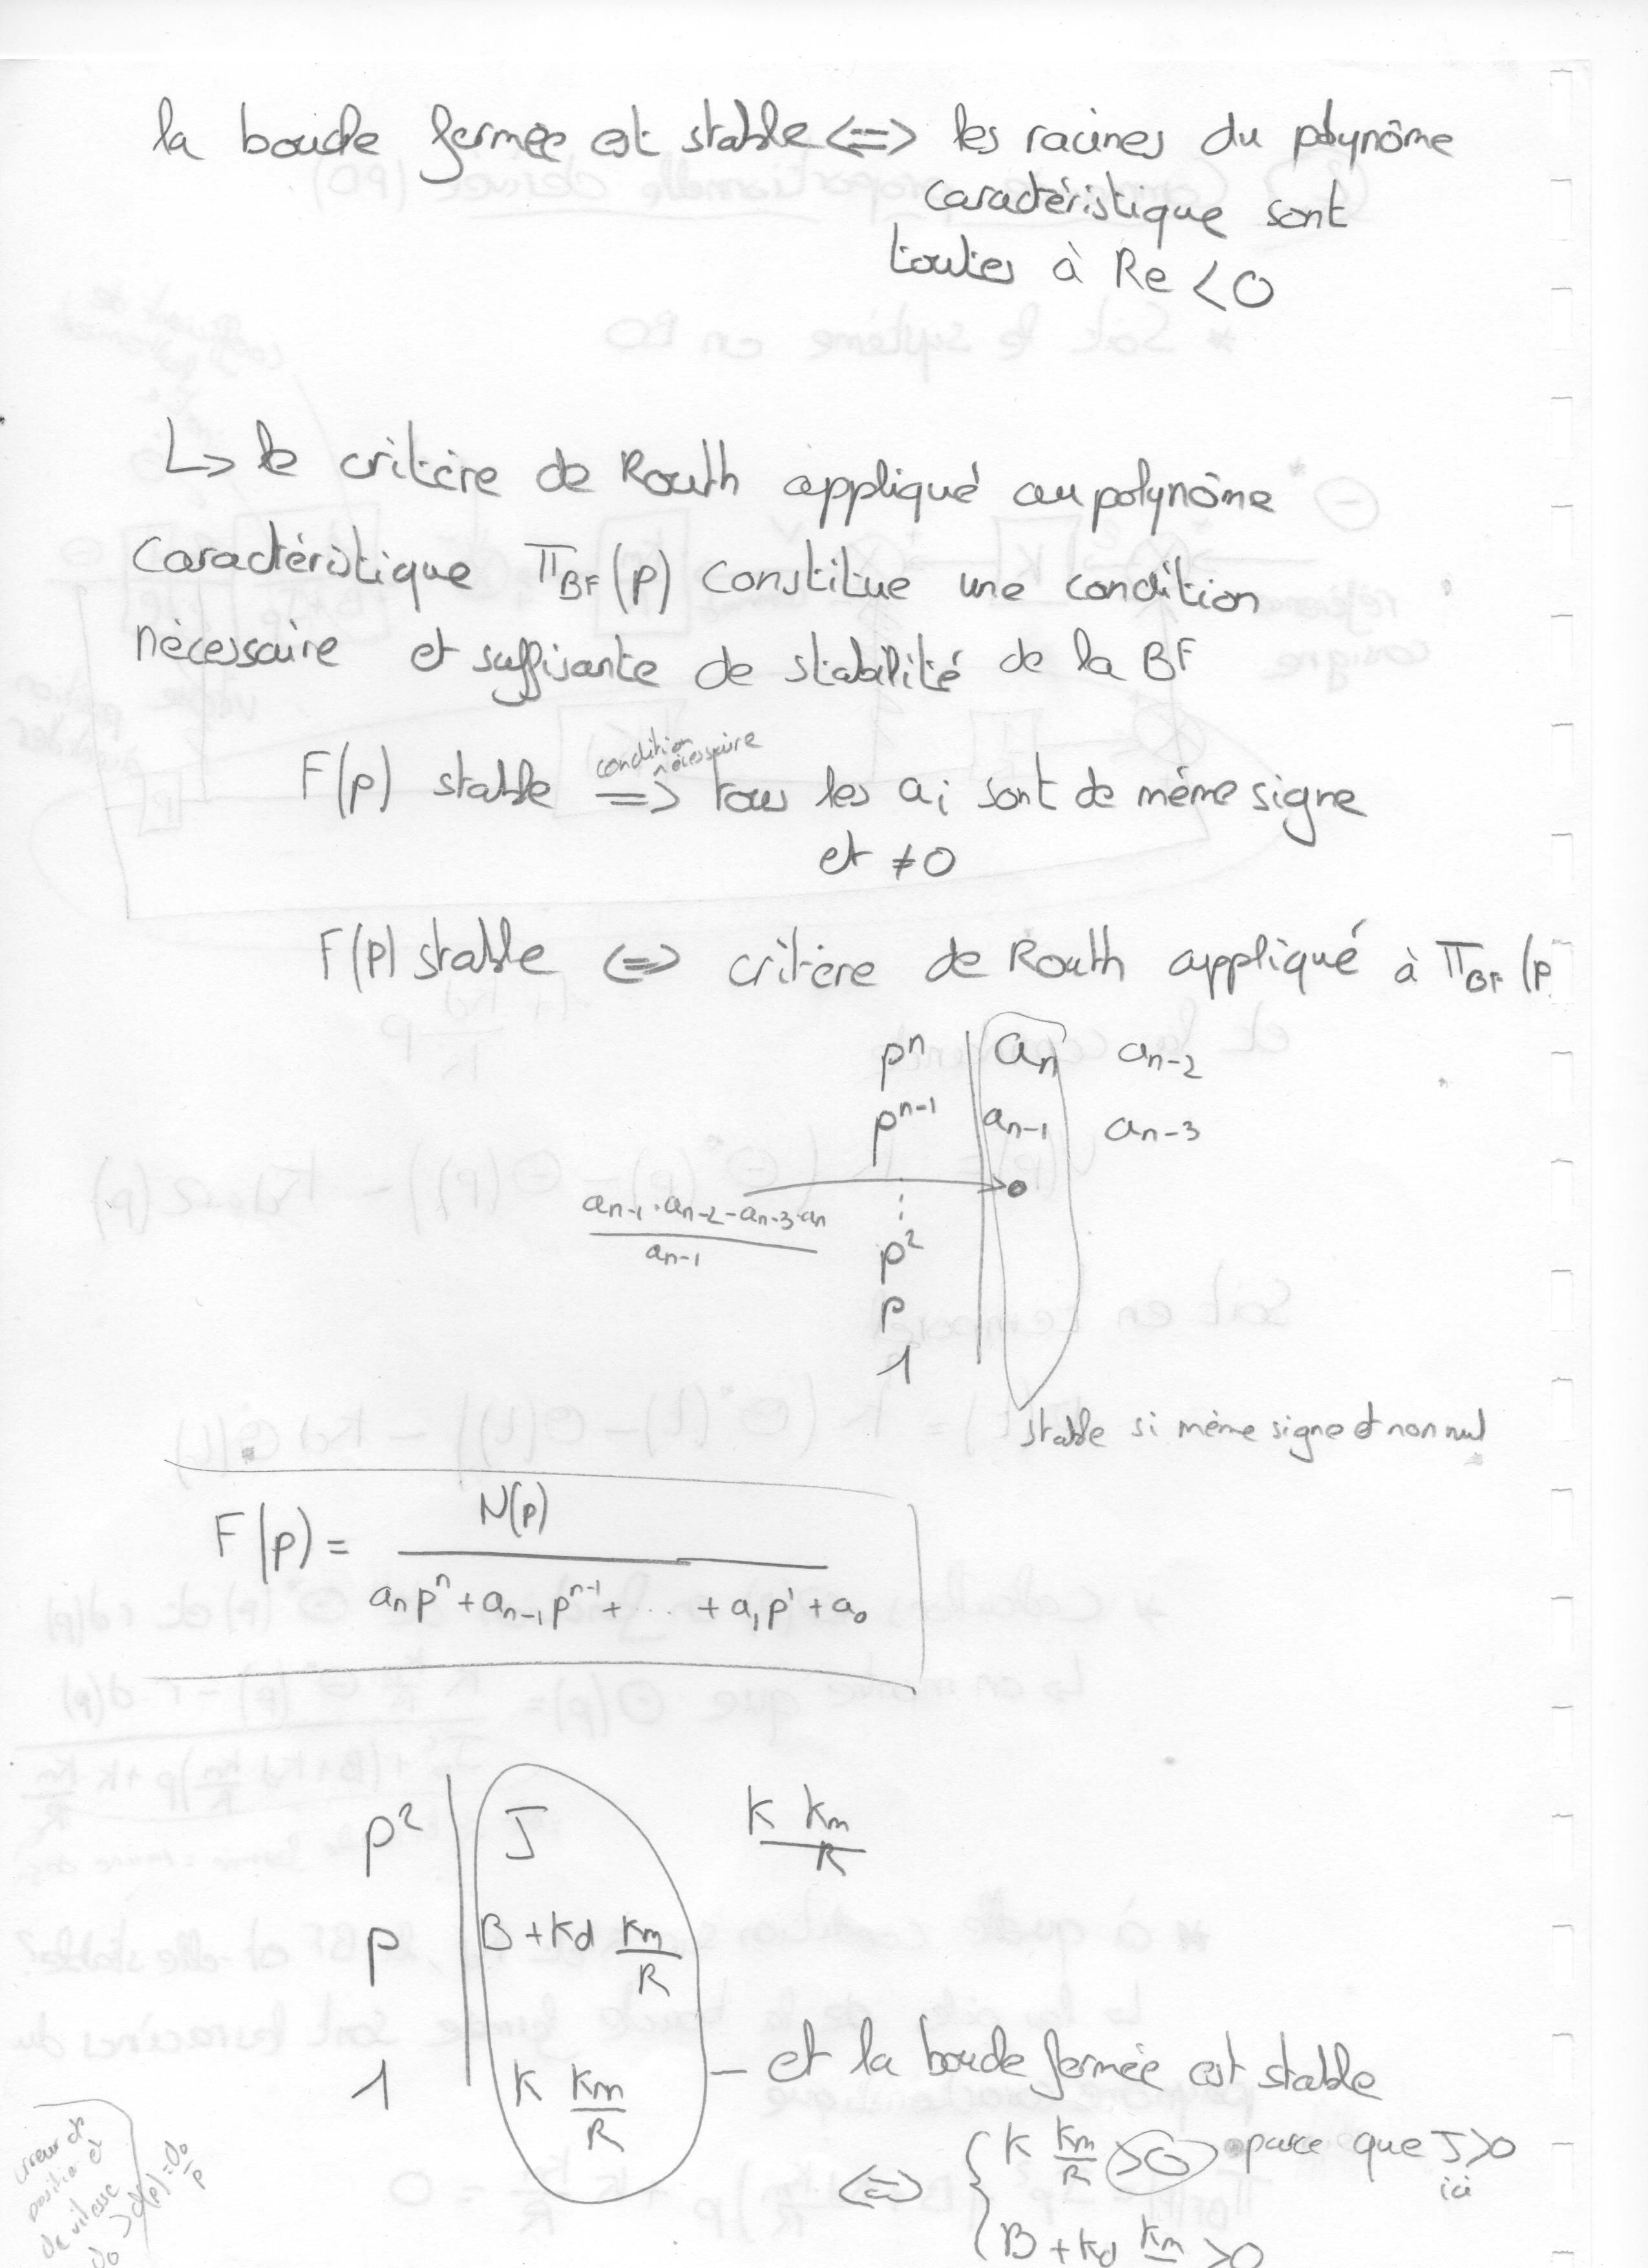 la boucle fermée est stable <=> les racines du polynôme
caractéristique sont
toutes à Re < 0
↳ le critère de Routh appliqué au polynôme
caractéristique π_BF(p) constitue une condition
nécessaire et suffisante de stabilité de la BF
condition nécessaire
F(p) stable => tous les a_i sont de même signe
et ≠ 0
F(p) stable <=> critère de Routh appliqué à π_BF(p
p^n | a_n a_{n-2}
p^{n-1} | a_{n-1} a_{n-3}
a_{n-1}·a_{n-2} - a_{n-3}·a_n
a_{n-1}
⋮
p^2
p
1
stable si même signe et non nul
N(p)
F(p) =
a_n p^n + a_{n-1} p^{n-1} + ... + a_1 p^1 + a_0
p^2 | J K km/R
p | B + Kd km/R
1 | K km/R – et la boucle fermée est stable
<=> { K km/R > 0 parce que J > 0
ici
B + Kd km > 0
erreur de
position et
de vitesse
d_0 > d(p) = d_0/p